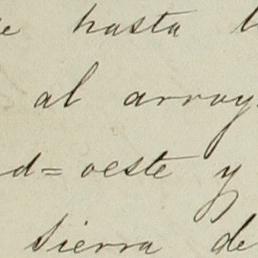 e hasta l
al arroy
d=oeste y
sierra de